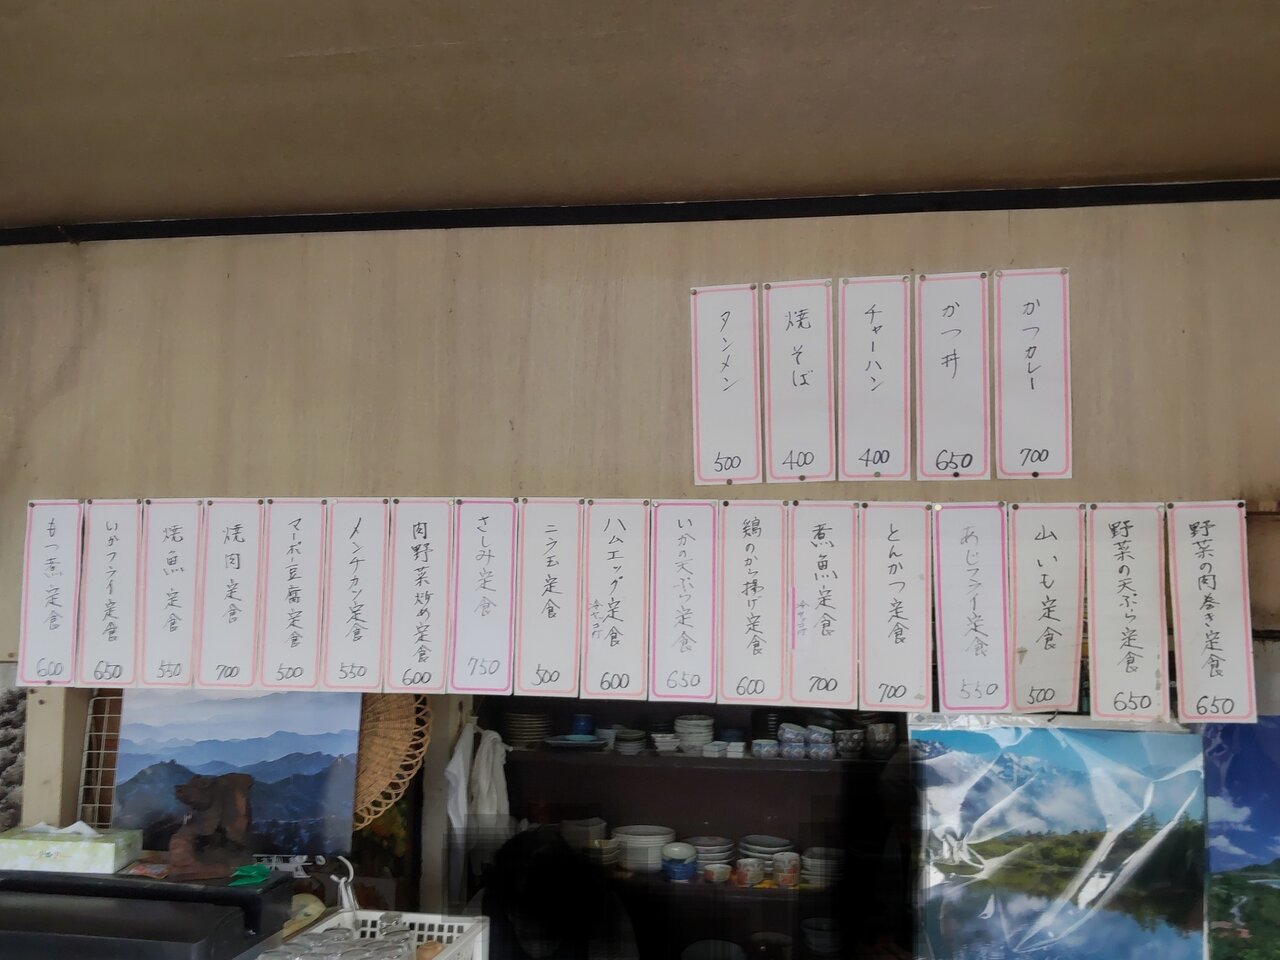 かつカレー
700
かつ丼
650
チャーハン
400
焼そば
400
タンメン
500
野菜の肉巻き定食
650
野菜の天ぷら定食
650
山いも定食
500
あじフライ定食
550
とんかつ定食
700
煮魚定食
冷ヤッコ付
700
鶏のから揚げ定食
600
いかの天ぷら定食
650
ハムエッグ定食
冷ヤッコ付
600
ニラ玉定食
500
さしみ定食
750
肉野菜炒め定食
600
メンチカツ定食
550
マーボー豆腐定食
500
焼肉定食
700
焼魚定食
550
いかフライ定食
650
もつ煮定食
600